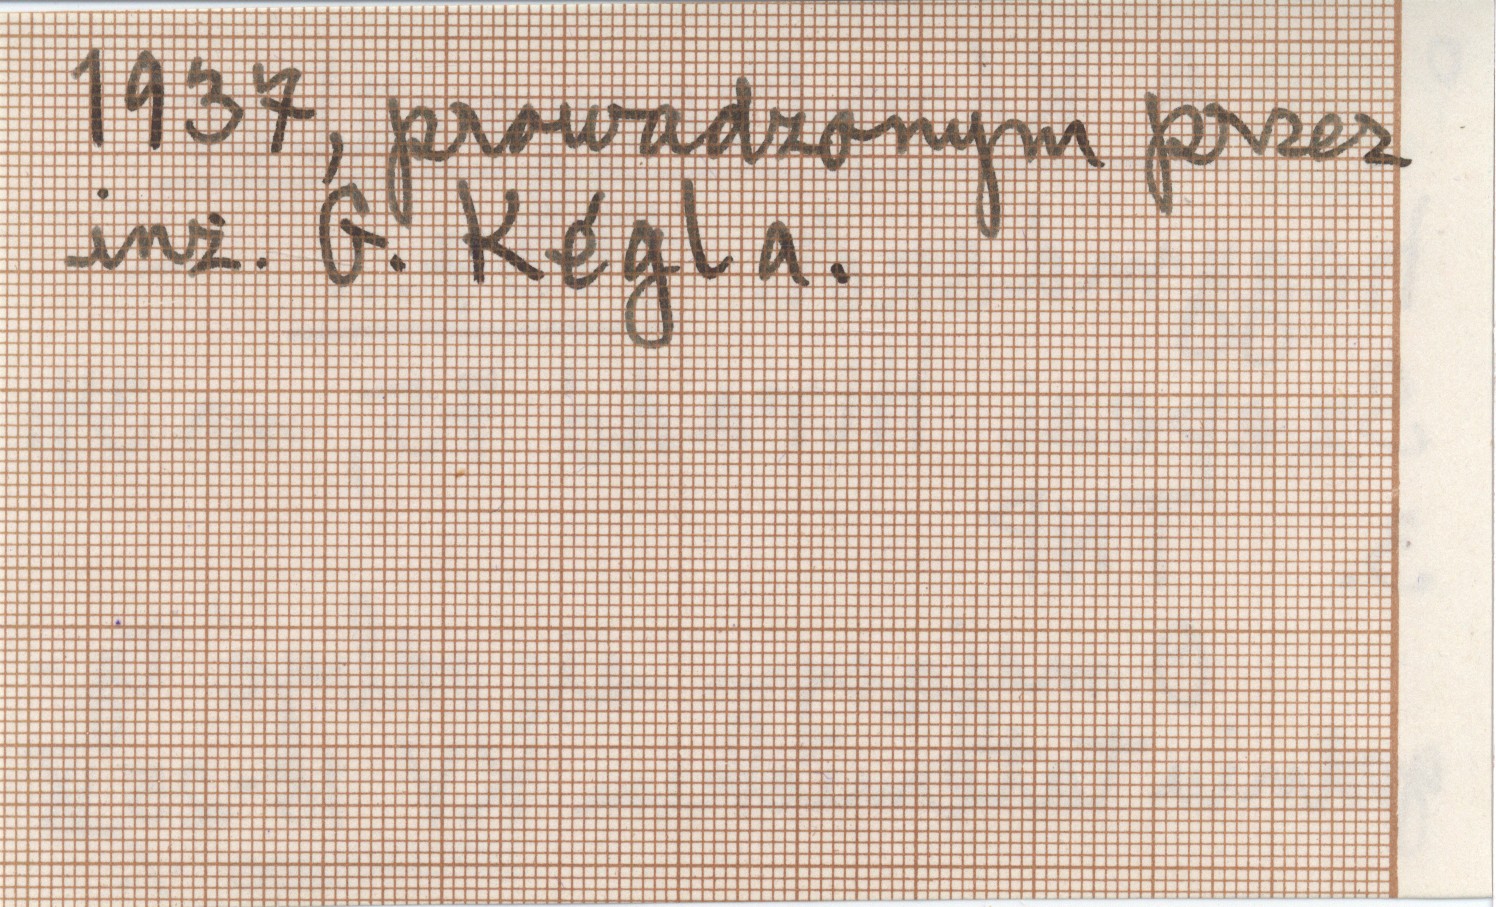 1937, prowadzonym przez
inż. G. Kégla.